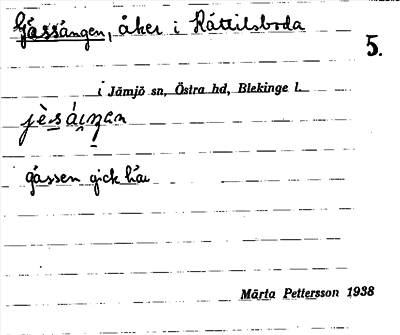 Gässängen, åker i Kättilsboda
5.
i Jämjö sn, Östra hd, Blekinge l.
gässen gick här
Märta Pettersson 1938